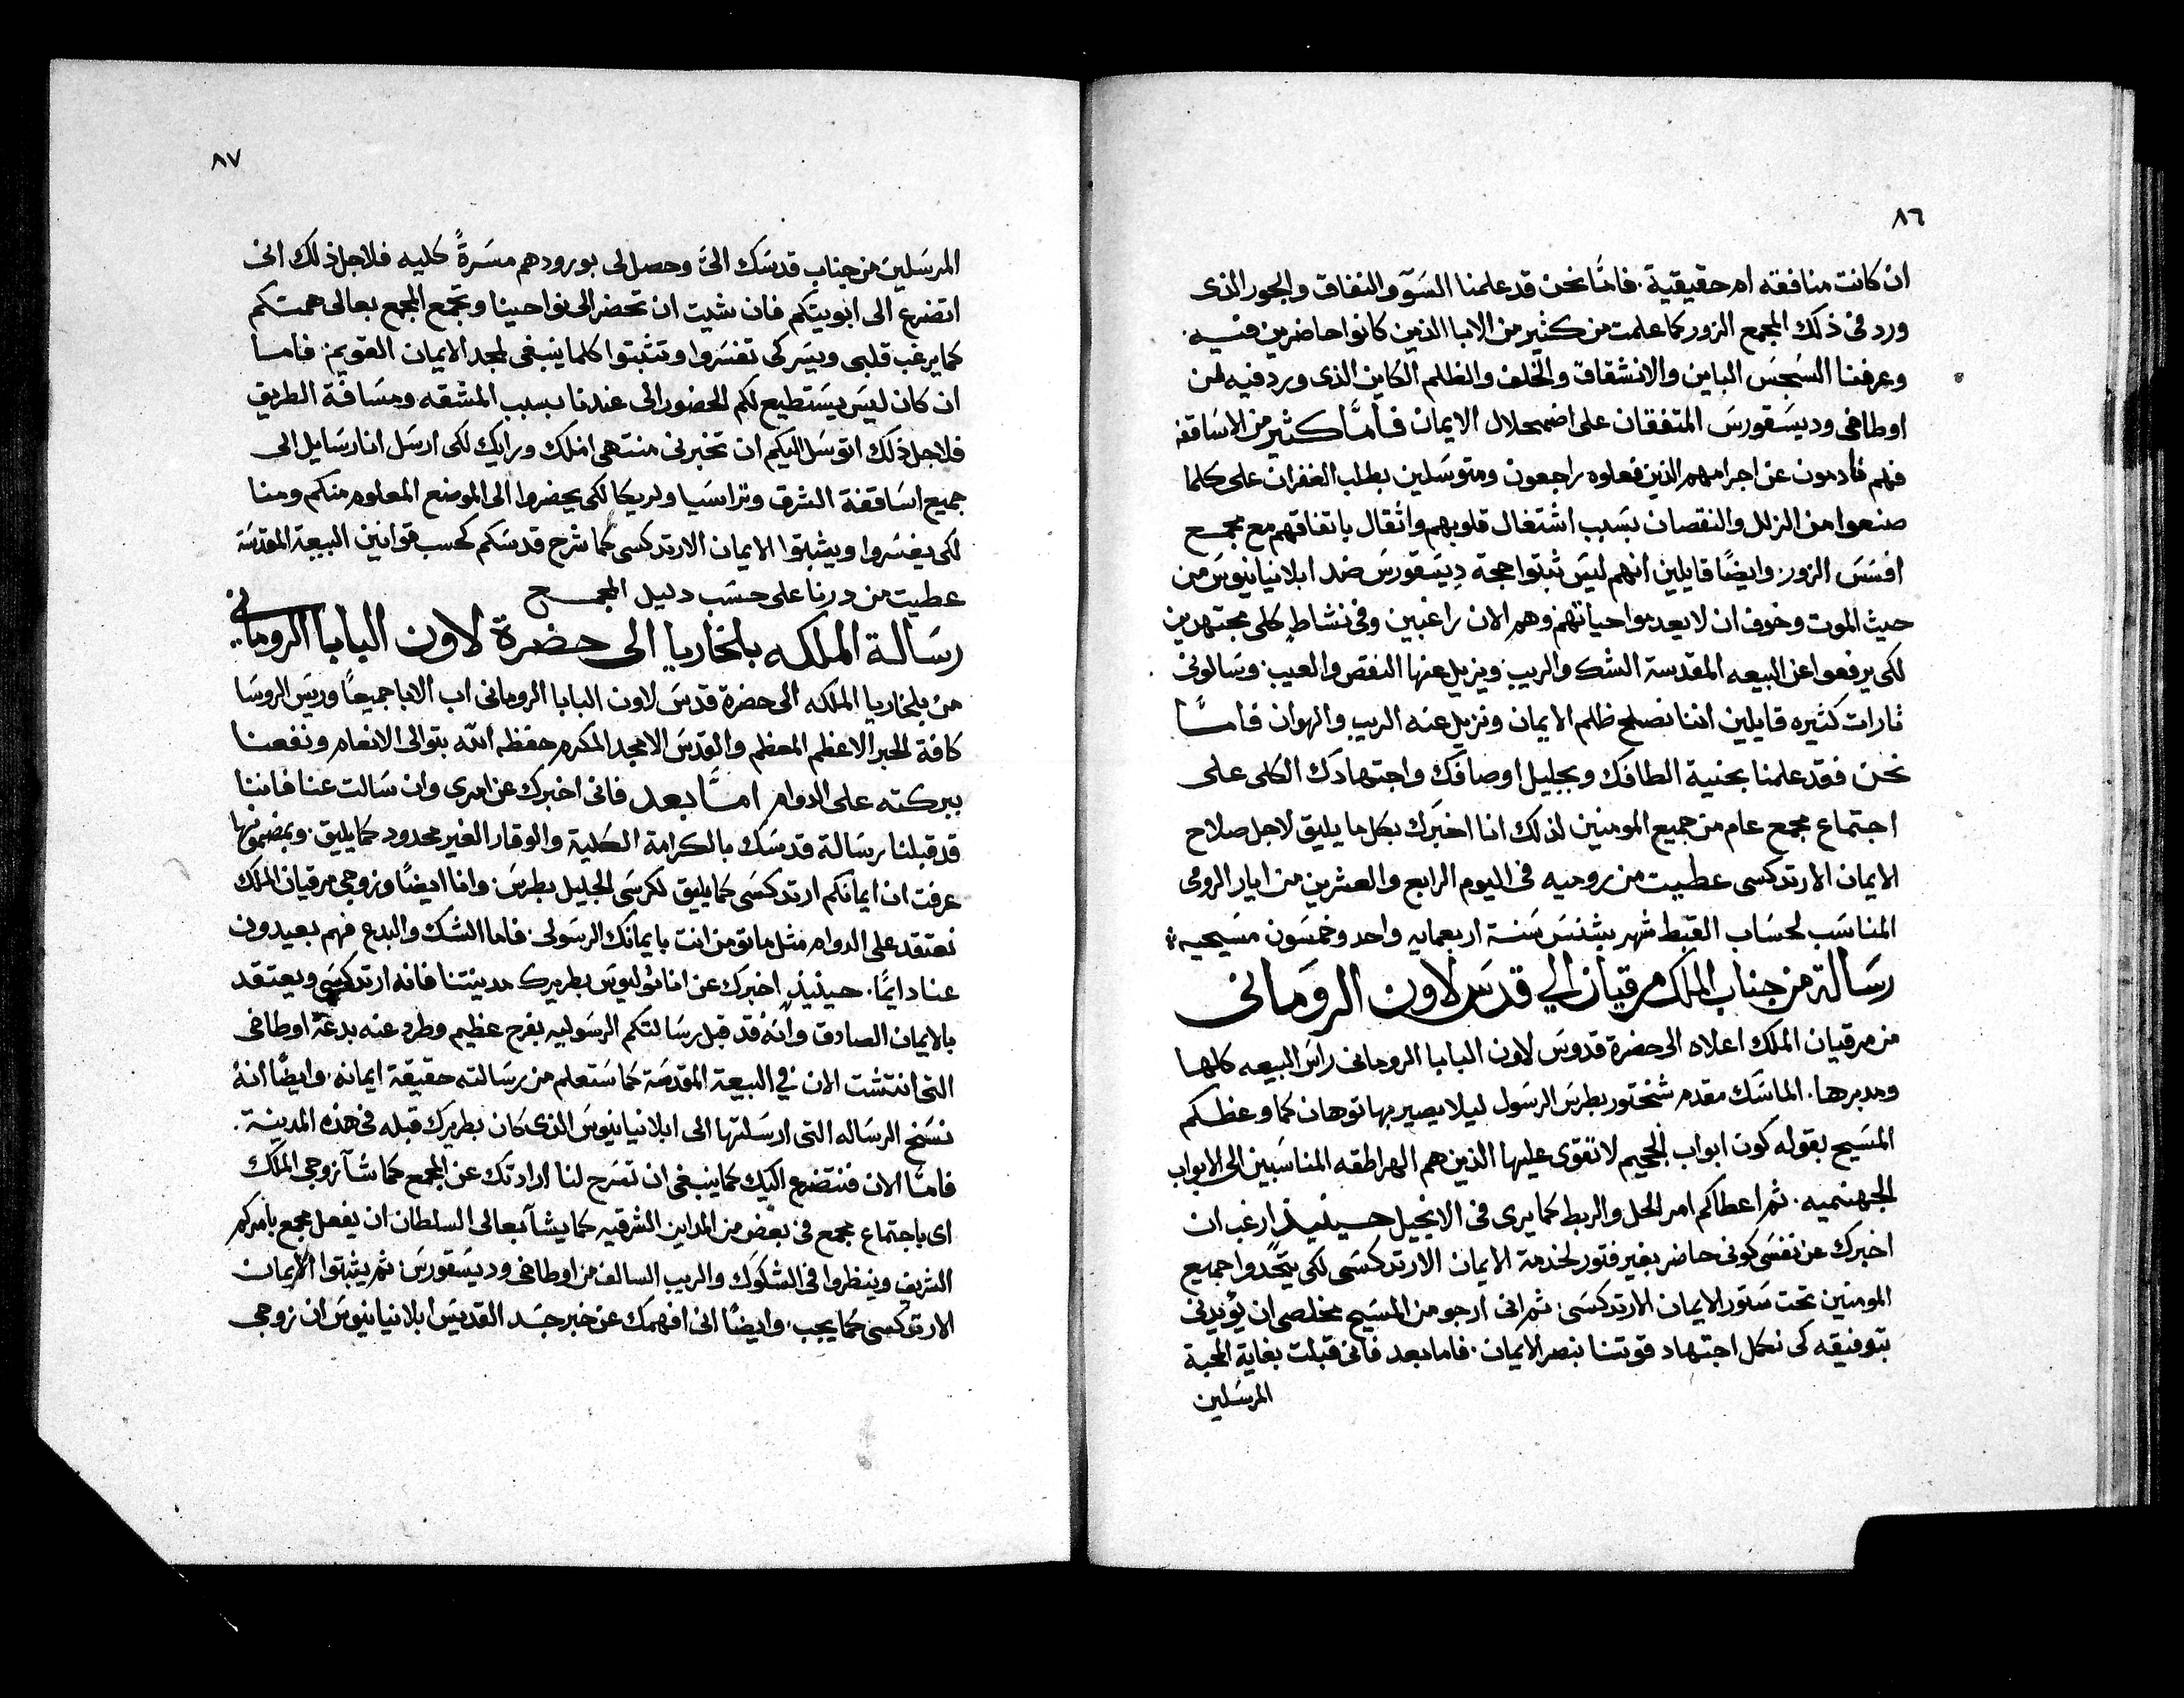 ٨٦
ان كانت منافقه ام حقيقية. فامّا نحن قد علمنا السَوء والنفاق والجور الذى
ورد فى ذلك المجمع الزور كما علمت من كثير من الابا الذين كانوا حاضرين فيه.
وعرفنا السُجسَ الباين والانشقاق والخلف والظلم الكاين الذى ورد فيه لمن
اوطاخى وديسَقورسَ المتفقان على اضمحلال الايمان فامّا كثير من الاسَاقفه
فهم نادمون عن اجرامهم الذين فعلوه راجعون ومتوسَلين بطلب الغفران على كلما
صنعوا من الزلل والنقصان بسَبب اشتغال قلوبهم واثقال باتفاقهم مع مجمع
افسَسَ الزور. وايضًا قايلين انهم ليسَ ثبتوا حجة ديسَقورسَ ضد ابلانيانيوسَ من
حيث الموت وخوف ان لا يعدموا حياتهم وهم الان راغبين وفى نشاطٍ كلى مجتهدين
لكى يرفعوا عن البيعه المقدسة الشك والريب. ويزيل عنها النقص والعيب. وسَالونى
تارات كثيره قايلين اننا نصلح ظلم الايمان ونزيل عنه الريب والهوان فامّا
نحن فقد علمنا بحنية الطافك وبجليل اوصافك واجتهادك الكلى على
اجتماع مجمع عام من جميع المومنين لذلك انا اخبرك بكل ما يليق لاجل صلاح
الايمان الارتدكسى عطيت من روميه فى اليوم الرابع والعشرين من ايار الرومى
المناسَب لحسَاب القبط شهر بشنسَ سَنة اربعمايه واحد وخمسَون مسَيحيه
رسَالة من جناب الملك مرقيان الي قدسَ لاون الرومَانى
من مرقيان الملك اعلاه الى حضرة قدوسَ لاون البابا الرومانى راسَ البيعه كلها
ومدبرها. الماسَك مقدم شختور بطرسَ الرسَول ليلا يصير بها توهان كما وعظكم
المسَيح بقوله كون ابواب الجحيم لا تقوى عليها الذين هم الهراطقه المناسَبين الى الابواب
الجهنميه. ثم اعطاكم امر الحل والربط كما يرى فى الانجيل حينيذٍ ارغب ان
اخبرك عن نفسَى كونى حاضر بغير فتور لخدمة الايمان الارتدكسَى لكى يتحدوا جميع
المومنين تحت سَتور الايمان الارتدكسَى. ثم انى ارجو من المسَيح مخلصى ان يؤيدنى
بتوفيقه كى نكمل اجتهاد قوتنا بنصر الايمان. فاما بعد فانى قبلت بغاية المحبة
المرسَلين
٨٧
المرسَلين من جناب قدسَك اليّ وحصل لى بورودهم مسَرةً كليه فلاجل ذلك انى
اتضرع الى ابويتكم فان شيت ان تحضر الى نواحينا وتجمّع المجمع بعالى همتكم
كما يرغب قلبى ويسَر كى تفسَروا وتثبتوا كلما ينبغى لمجد الايمان القويم. فاما
ان كان ليسَ يسَتطيع لكم الحضور الى عندنا بسبب المشقه ومسَافة الطريق
فلاجل ذلك اتوسَل اليكم ان تخبرنى منتهى املك ورايك لكى ارسَل انا رسَايل الى
جميع اسَاقفة الشرق وتراسَيا ولريكا لكى يحضروا الى الموضع المعلوم منكم ومنا
لكى يفسَروا ويثبتوا الايمان الارتدكسى كما شرح قدسَكم كحسب قوانين البيعة المقدسَة
عطيت من درنا على حسَب دليل المجمع
رسَالة الملكه بلخاريا الى حضرة لاون البابا الرومانى
من بلخاريا الملكه الى حضرة قدسَ لاون البابا الرومانى اب الابا جميعًا وريسَ الروسَا
كافة الحبر الاعظم المعظم والقدسَ الامجد المكرم حفظه الله بتوالى الانعام ونفعنا
ببركته على الدوام امّا بعد فانى اخبرك عن امرى وان سَالت عنا فاننا
قد قبلنا رسَالة قدسَك بالكرامة الكلية والوقار الغير محدود كما يليق. وبمضمونها
عرفت ان ايمانكم ارتدكسَى كما يليق لكرسَى الجليل بطرسَ. وانا ايضًا وزوجى مرقيان الملك
نعتقد على الدوام مثل ما تومن انت بايمانك الرسَولى. فاما الشك والبدع فهم بعيدون
عنا دايمًا. حينيذٍ اخبرك عن اناتوليوسَ بطريرك مدينتنا فانه ارتدكسَى ويعتقد
بالايمان الصادق وانه قد قبل رسَالتكم الرسَوليه بفرح عظيم وطرد عنه بدعة اوطاخى
التى انتشت الان في البيعة المقدسَة كما سَتعلم من رسَالته حقيقة ايمانه. وايضًا انهُ
نسَخ الرسَاله التى ارسَلتها الى ابلانيانيوسَ الذى كان بطريرك قبله فى هذه المدينة.
فامّا الان فنتضرع اليك كما ينبغى ان تشرح لنا ارادتك عن المجمع كما شآ زوجى الملك
اى باجتماع مجمع فى بعض من المداين المشرقيه كما يشآ تعالى السلطان ان يفعل مجمع بامركم
الشريف وينظروا فى الشكوك والريب السالف من اوطاخى وديسَقورسَ. ثم يثبتوا الايمان
الارتوكسى كما يجب. وايضًا انى افهمك عن خبر جسَد القديسَ ابلانيانيوسَ ان زوجى